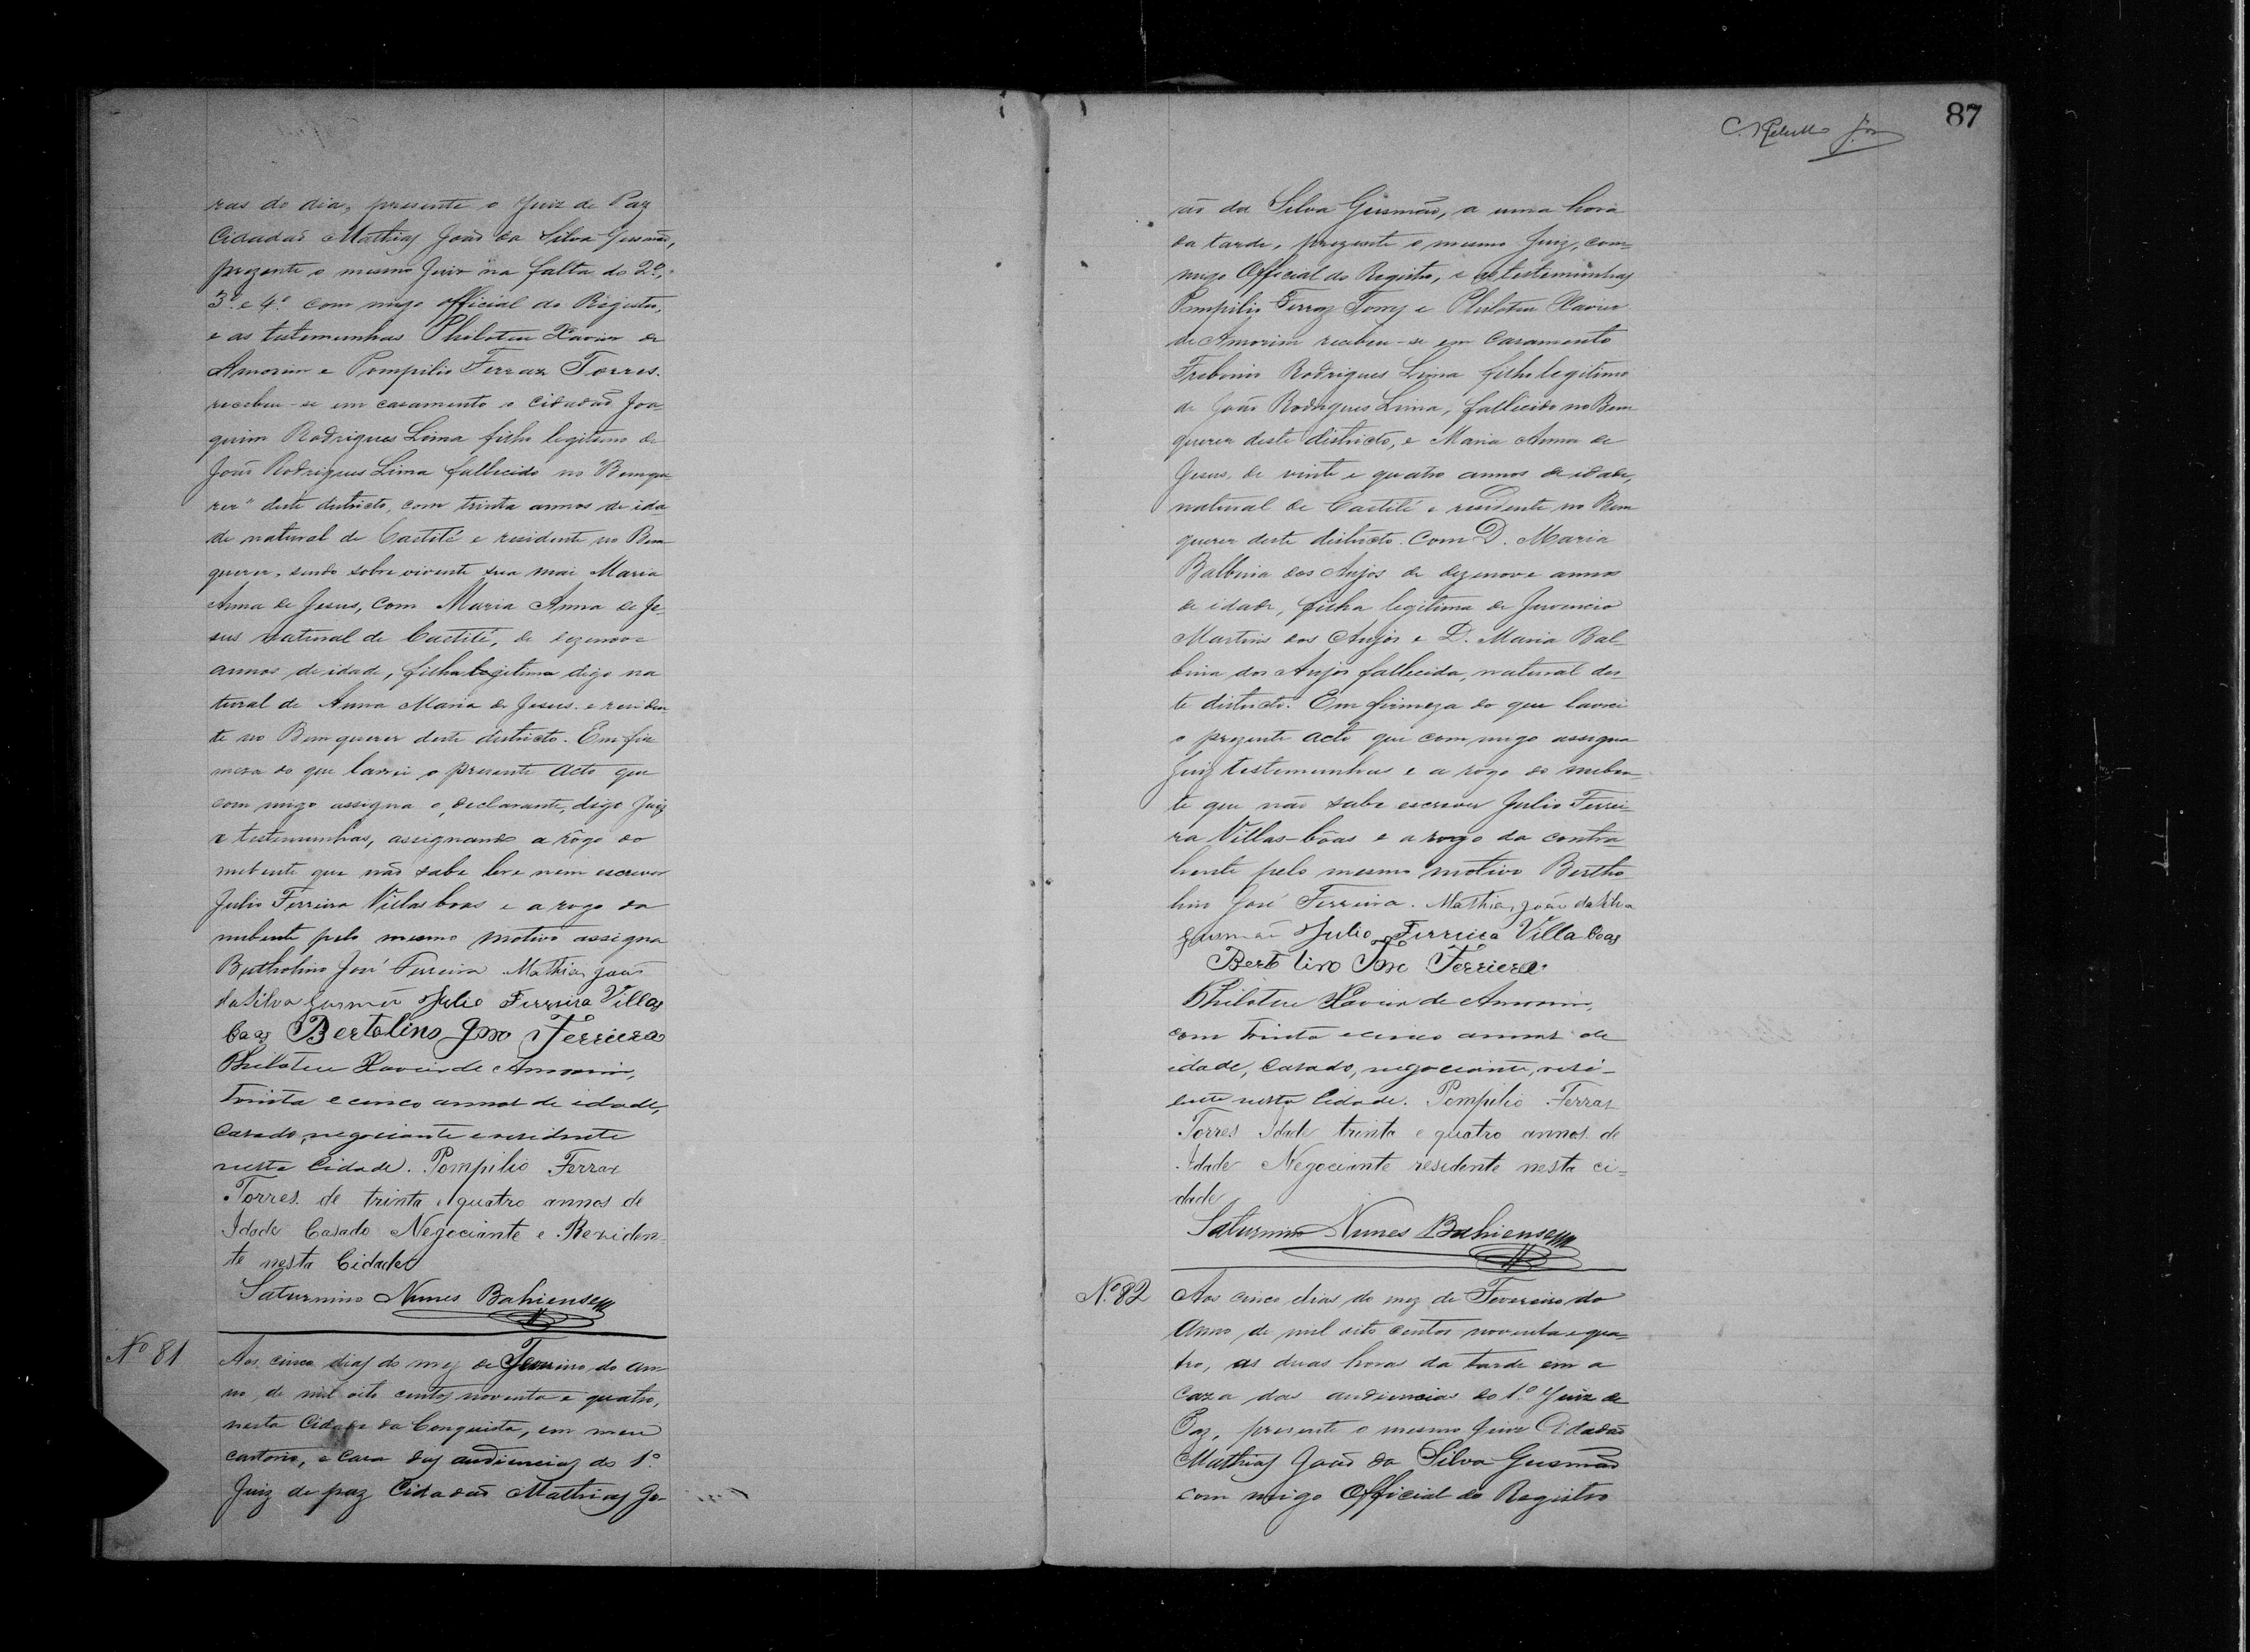 ras do dia, presente o Juiz de Paz
Cidadão Mathias João da Silva Gusmão,
prezente o mesmo Juiz na falta do 2º,
3º e 4º com migo official do Registro,
e as testemunhas Philoteu Xavier de
Amorim e Pompilio Ferraz Torres.
recebeu-se em casamento o Cidadão Joa-
quim Rodrigues Lima filho legitimo de
João Rodrigues Lima fallecido no "Bemque
rer" deste districto, com trinta annos de ida
de natural de Caetité e residente no Bem
querer, sendo sobre vivente sua mai Maria
Anna de Jesus, com Maria Anna de Je-
sus natural de Caetité, de dezenove
annos de idade, filha legitima digo na
tural de Anna Maria de Jesus. e residen
te no Bem querer deste districto. Em fir
meza do que lavrei o presente acto que
com migo assigna o, declarante, digo Juiz
e testemunhas, assignando a rôgo do
nubente que não sabe ler e nem escrever
Julio Ferreira Villas boas e a rogo da
nubente pelo mesmo motivo assigna
Bertholino José Ferreira. Mathias João
da Silva Gusmão Julio Ferreira Villas
Boas Bertolino Joze Ferriera
Philoteu Xavier de Amorim,
trinta e cinco annos de idade,
Casado, negociante e residente
nesta Cidade. Pompilio Ferraz
Torres. de trinta e quatro annos de
Idade Casado Negociante e Reziden-
te nesta Cidade
Saturnino Nunes Bahiense
Nº 81
Aos cinco dias do mez de Fevereiro do an
no de mil oito centos noventa e quatro,
nesta Cidade da Conquista, em meu
cartorio, e Casa das audiencias do 1º
Juiz de paz Cidadão Mathias Jo-
87
ão da Silva Gusmão, a uma hora
da tarde, prezente o mesmo Juiz, com
migo Official do Registro, e as testemunhas
Pompilio Ferraz Torres e Philoteu Xavier
de Amorim recebeu-se em Casamento
Rodrigues Lima filho legitimo
de João Rodrigues Lima, fallecido no Bem
querer deste districto, e Maria Anna de
Jesus, de vinte e quatro annos de idade,
natural de Caetité e residente no Bem
querer deste districto. Com D. Maria
Balbina dos Anjos de dezenove annos
de idade, filha legitima de Juvencio
Martins dos Anjos e D. Maria Bal-
bina dos Anjos fallecida, natural des-
te districto. Em firmeza do que lavrei
o prezente acto que com migo assigna
Juiz testemunhas e a rogo do nuben-
te que não sabe escrever Julio Ferrei-
ra Villas-bôas e a rogo da contra-
hente pelo mesmo motivo Bertho
lino José Ferreira. Mathias João da Silva
Gusmão Julio Ferreira Villa boas
Bertolino Joze Ferriera.
Philoteu Xavier de Amorim,
com trinta e cinco annos de
idade, Casado, negociante, resi-
ente nesta Cidade. Pompilio Ferraz
Torres Idade trinta e quatro annos. de
Idade Negociante residente nesta ci=
dade
Saturnino Nunes Bahiense
Nº 82
Aos cinco dias do mez de Fevereiro do
Anno de mil oito centos noventa e qua-
tro, as duas horas da tarde em a
Caza das audiencias do 1º Juiz de
Paz, presente o mesmo Juiz Cidadão
Mathias João da Silva Gusmão
com migo Official do Registro